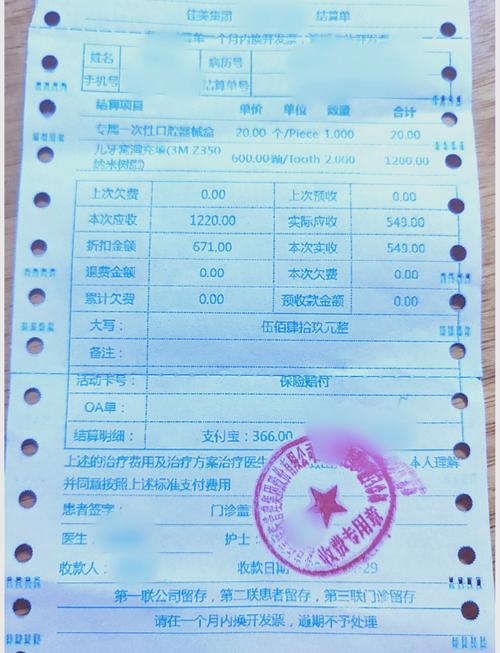 佳美集团 结算单
单一个月内换开发票
姓名 病历号
手机号 结算单号
结算项目 单价 单位 数量 合计
专属一次性口腔器械盒 20.00 个/Piece 1.000 20.00
儿牙窝洞充填(3M Z350 600.00 颗/Tooth 2.000 1200.00
纳米树脂)
上次欠费 0.00 上次预收 0.00
本次应收 1220.00 实际应收 549.00
折扣金额 671.00 本次实收 549.00
退费金额 0.00 本次欠费 0.00
累计欠费 0.00 预收款金额 0.00
大写: 伍佰肆拾玖元整
备注:
活动卡号: 保险赔付
OA单:
结算明细: 支付宝:366.00
上述的治疗费用及治疗方案治疗医生 本人理解
并同意按照上述标准支付费用
患者签字: 门诊盖
医生: 护士:
收款人: 收款日期 29
收费专用章
第一联公司留存,第二联患者留存,第三联门诊留存
请在一个月内换开发票,逾期不予处理